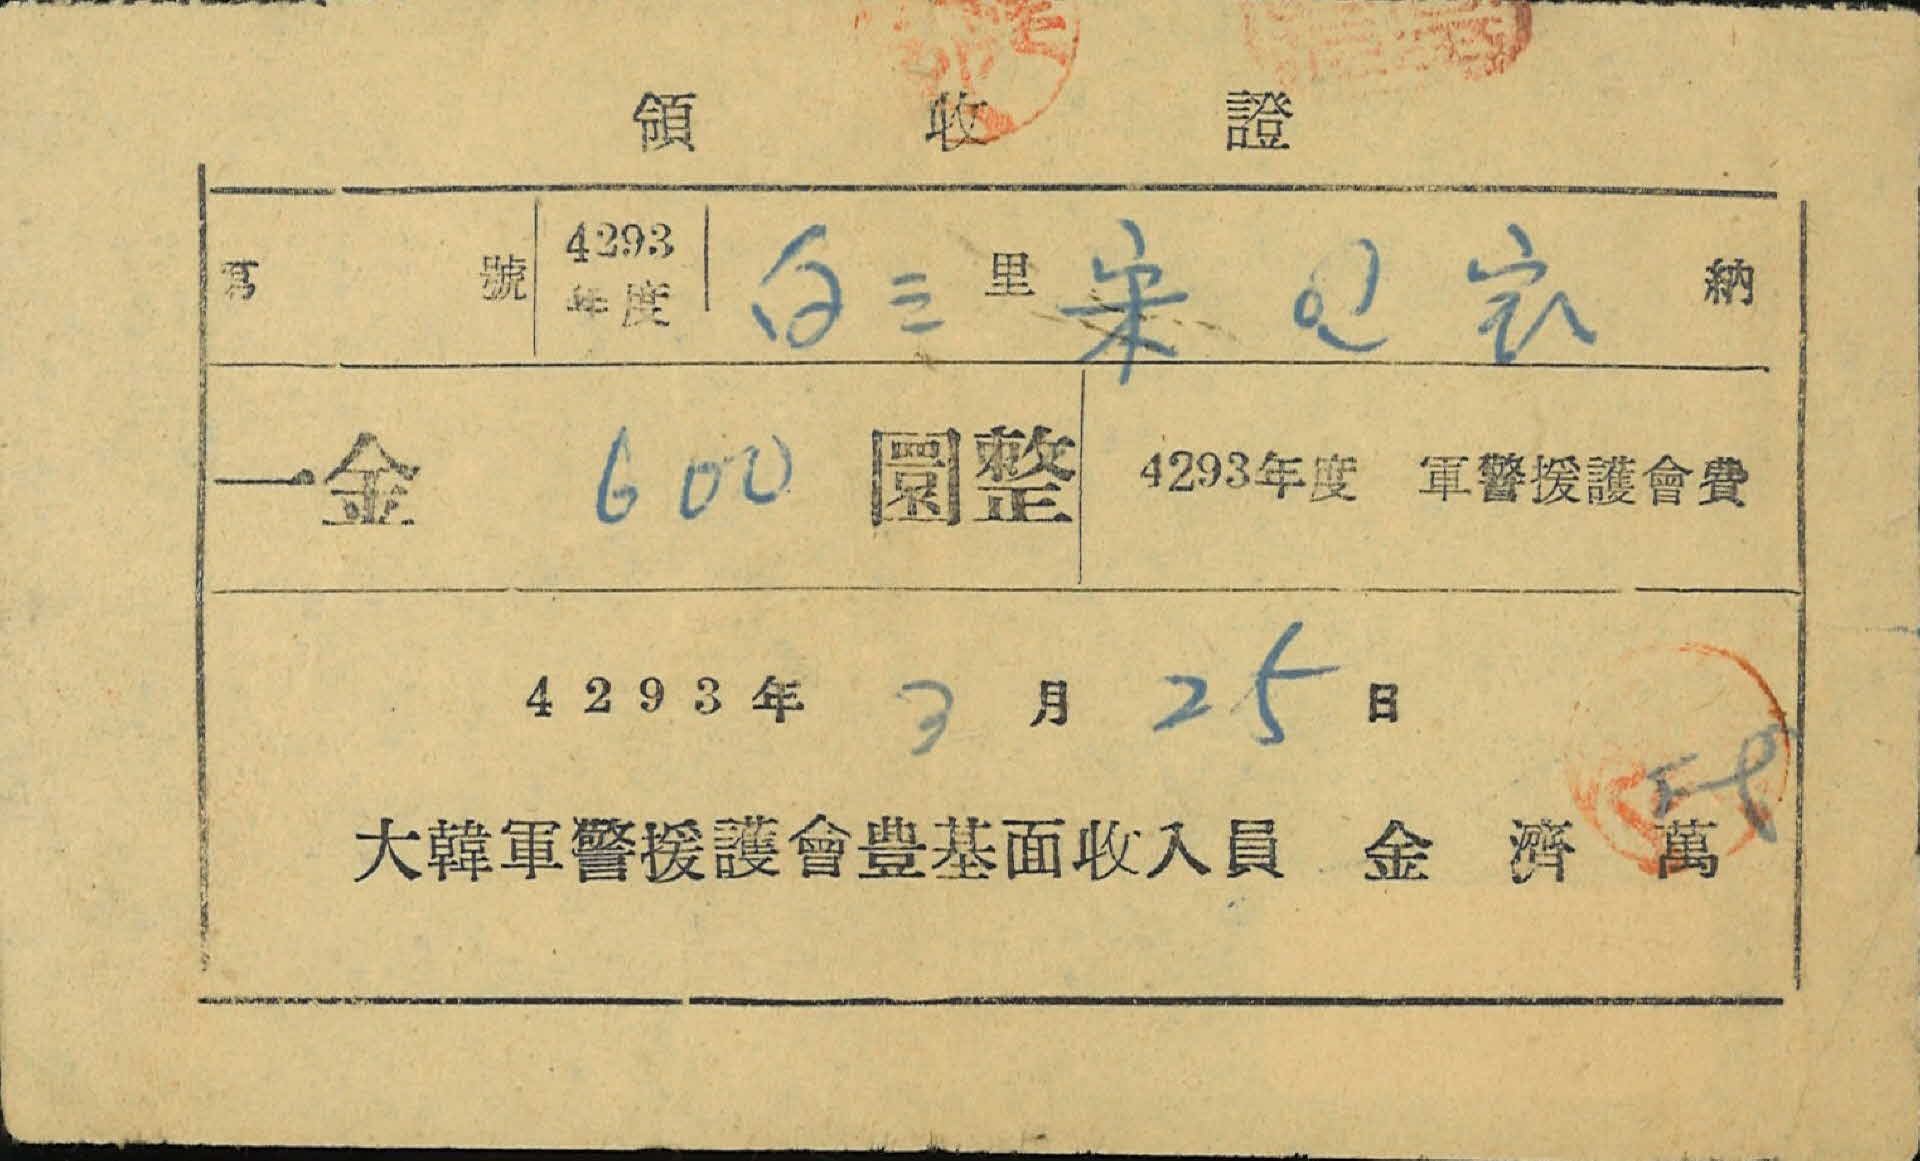 領收證
號 4293年度 白三里 宋인宗 納
一金 600 圜整 4293年度 軍警援護會費
4293年 3月 25日
大韓軍警援護會豊基面收入員 金濟萬